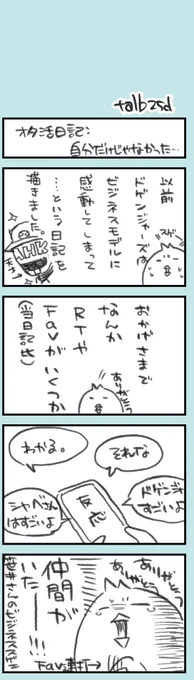 talb25d
オタ活日記:
自分だけじゃなかった…
以前
ドゲンジャーズは
ビジネスモデルに
感動してしまって
……という日記を
描きました。
スゲ
おかげさまで
なんか
RTや
Favがいくつか
(当日記比)
ありがとう
それな
わかる。
ドゲンジャー
すごいよ
シャベさん
はすごいよ
反応
ありがとー
ありがとー
仲間が
いたーー!!!
Fav数件→